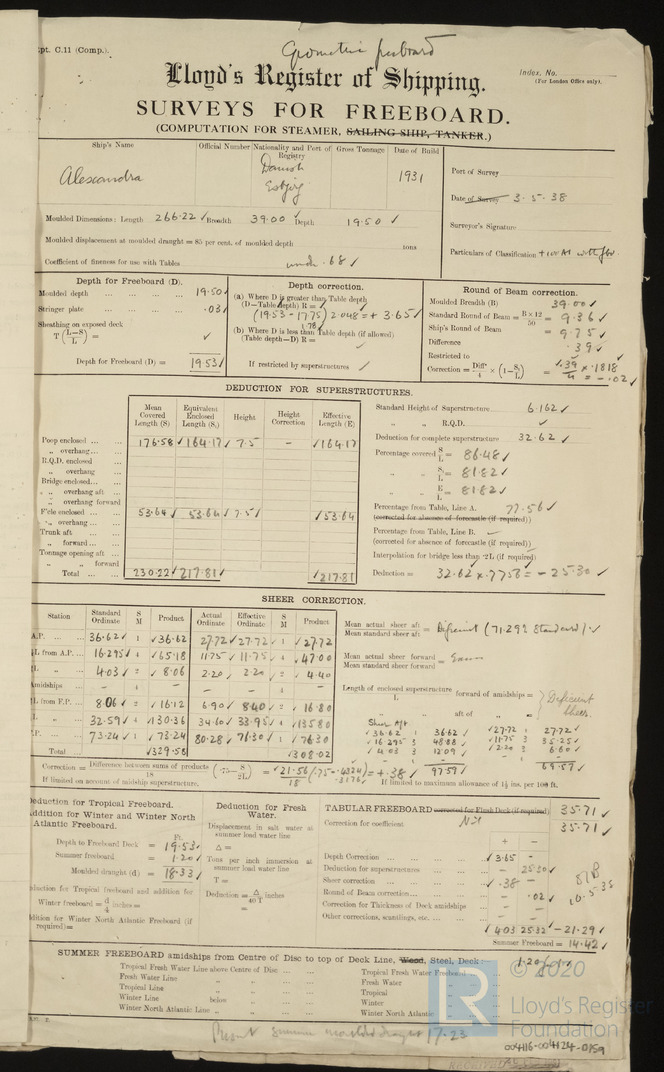 pt. C.11 (Comp.).
Geometric freeboard
Index. No.
(For London Office only).
Lloyd's Register of Shipping.
SURVEYS FOR FREEBOARD.
(COMPUTATION FOR STEAMER, SAILING SHIP, TANKER.)
Ship's Name Official Number Nationality and Port of Registry Gross Tonnage Date of Build
Alexandra Danish Esbjerg 1931
Port of Survey
Date of Survey 3.5.38
Surveyor's Signature
Particulars of Classification +100A1 with fbd.
Moulded Dimensions: Length 266.22 Breadth 39.00 Depth 19.50
Moulded displacement at moulded draught = 85 per cent. of moulded depth tons
Coefficient of fineness for use with Tables under .68
Depth for Freeboard (D).
Moulded depth 19.50
Stringer plate .03
Sheathing on exposed deck
T (L-S/L) =
Depth for Freeboard (D) = 19.53
Depth correction.
(a) Where D is greater than Table depth
(D-Table depth) R =
(19.53 - 17.75) 2.048 = + 3.65
1.78
(b) Where D is less than Table depth (if allowed)
(Table depth-D) R =
If restricted by superstructures
Round of Beam correction.
Moulded Breadth (B) 39.00
Standard Round of Beam = B×12/50 = 9.36
Ship's Round of Beam = 9.75
Difference .39
Restricted to
Correction = Diff/4 × (1-S₁/L) = .39/4 × .1818 = -.02
DEDUCTION FOR SUPERSTRUCTURES.
Mean Covered Length (S) Equivalent Enclosed Length (S₁) Height Height Correction Effective Length (E)
Poop enclosed 176.58 164.17 7.5 - 164.17
„ overhang
R.Q.D. enclosed
„ overhang
Bridge enclosed
„ overhang aft
„ overhang forward
F'cle enclosed 53.64 53.64 7.5 53.64
„ overhang
Trunk aft
„ forward
Tonnage opening aft
„ „ forward
Total 230.22 217.81 217.81
Standard Height of Superstructure 6.162
„ „ R.Q.D.
Deduction for complete superstructure 32.62
Percentage covered S/L = 86.48
„ „ S₁/L = 81.82
„ „ E/L = 81.82
Percentage from Table, Line A. 77.56
(corrected for absence of forecastle (if required))
Percentage from Table, Line B.
(corrected for absence of forecastle (if required))
Interpolation for bridge less than ·2L (if required)
Deduction = 32.62 × .7756 = - 25.30
SHEER CORRECTION.
Station Standard Ordinate S M Product Actual Ordinate Effective Ordinate S M Product
A.P. 36.62 1 36.62 27.72 27.72 1 27.72
L from A.P. 16.295 4 65.18 11.75 11.75 4 47.00
L „ 4.03 2 8.06 2.20 2.20 2 4.40
Amidships - 4 - - 4 -
L from F.P. 8.06 2 16.12 6.90 8.40 2 16.80
L „ 32.59 4 130.36 34.60 33.95 4 135.80
F.P. 73.24 1 73.24 80.28 76.30 1 76.30
Total 329.58 308.02
Mean actual sheer aft / Mean standard sheer aft = Deficient (71.29% Standard)
Mean actual sheer forward / Mean standard sheer forward =
Length of enclosed superstructure / L forward of amidships =
„ aft of „ =
Deficient sheer.
Sheer Aft
36.62 1 36.62 27.72 1 27.72
16.295 3 48.88 11.75 3 35.25
4.03 3 12.09 2.20 3 6.60
- 1 - - 1 -
97.59 69.57
Correction = Difference between sums of products/18 (·75 - S/2L) = 21.56/18 (.75 - .4324) = + .38
.3176
If limited on account of midship superstructure.
If limited to maximum allowance of 1½ ins. per 100 ft.
Deduction for Tropical Freeboard.
Addition for Winter and Winter North Atlantic Freeboard.
Ft.
Depth to Freeboard Deck = 19.53
Summer freeboard = 1.20
Moulded draught (d) = 18.33
Deduction for Tropical freeboard and addition for
Winter freeboard = d/4 inches =
Addition for Winter North Atlantic Freeboard (if required) =
Deduction for Fresh Water.
Displacement in salt water at summer load water line
Δ =
Tons per inch immersion at summer load water line
T =
Deduction = Δ/40 T inches
=
TABULAR FREEBOARD corrected for Flush Deck (if required) 35.71
Correction for coefficient Nil 35.71
+ -
Depth Correction 3.65 -
Deduction for superstructures - 25.30
Sheer correction .38 -
Round of Beam correction - .02
Correction for Thickness of Deck amidships - -
Other corrections, scantlings, etc. - -
4.03 25.32 - 21.29
Summer Freeboard = 14.42
10.5.38
SUMMER FREEBOARD amidships from Centre of Disc to top of Deck Line, Wood, Steel, Deck:- 1.20
Tropical Fresh Water Line above Centre of Disc
Fresh Water Line „ „
Tropical Line „ „
Winter Line below „ „
Winter North Atlantic Line „ „
Tropical Fresh Water Freeboard
Fresh Water „
Tropical „
Winter „
Winter North Atlantic „
Present summer moulded draught 17-23
© 2020
LR
Lloyd's Register
Foundation
004116-004124-0159